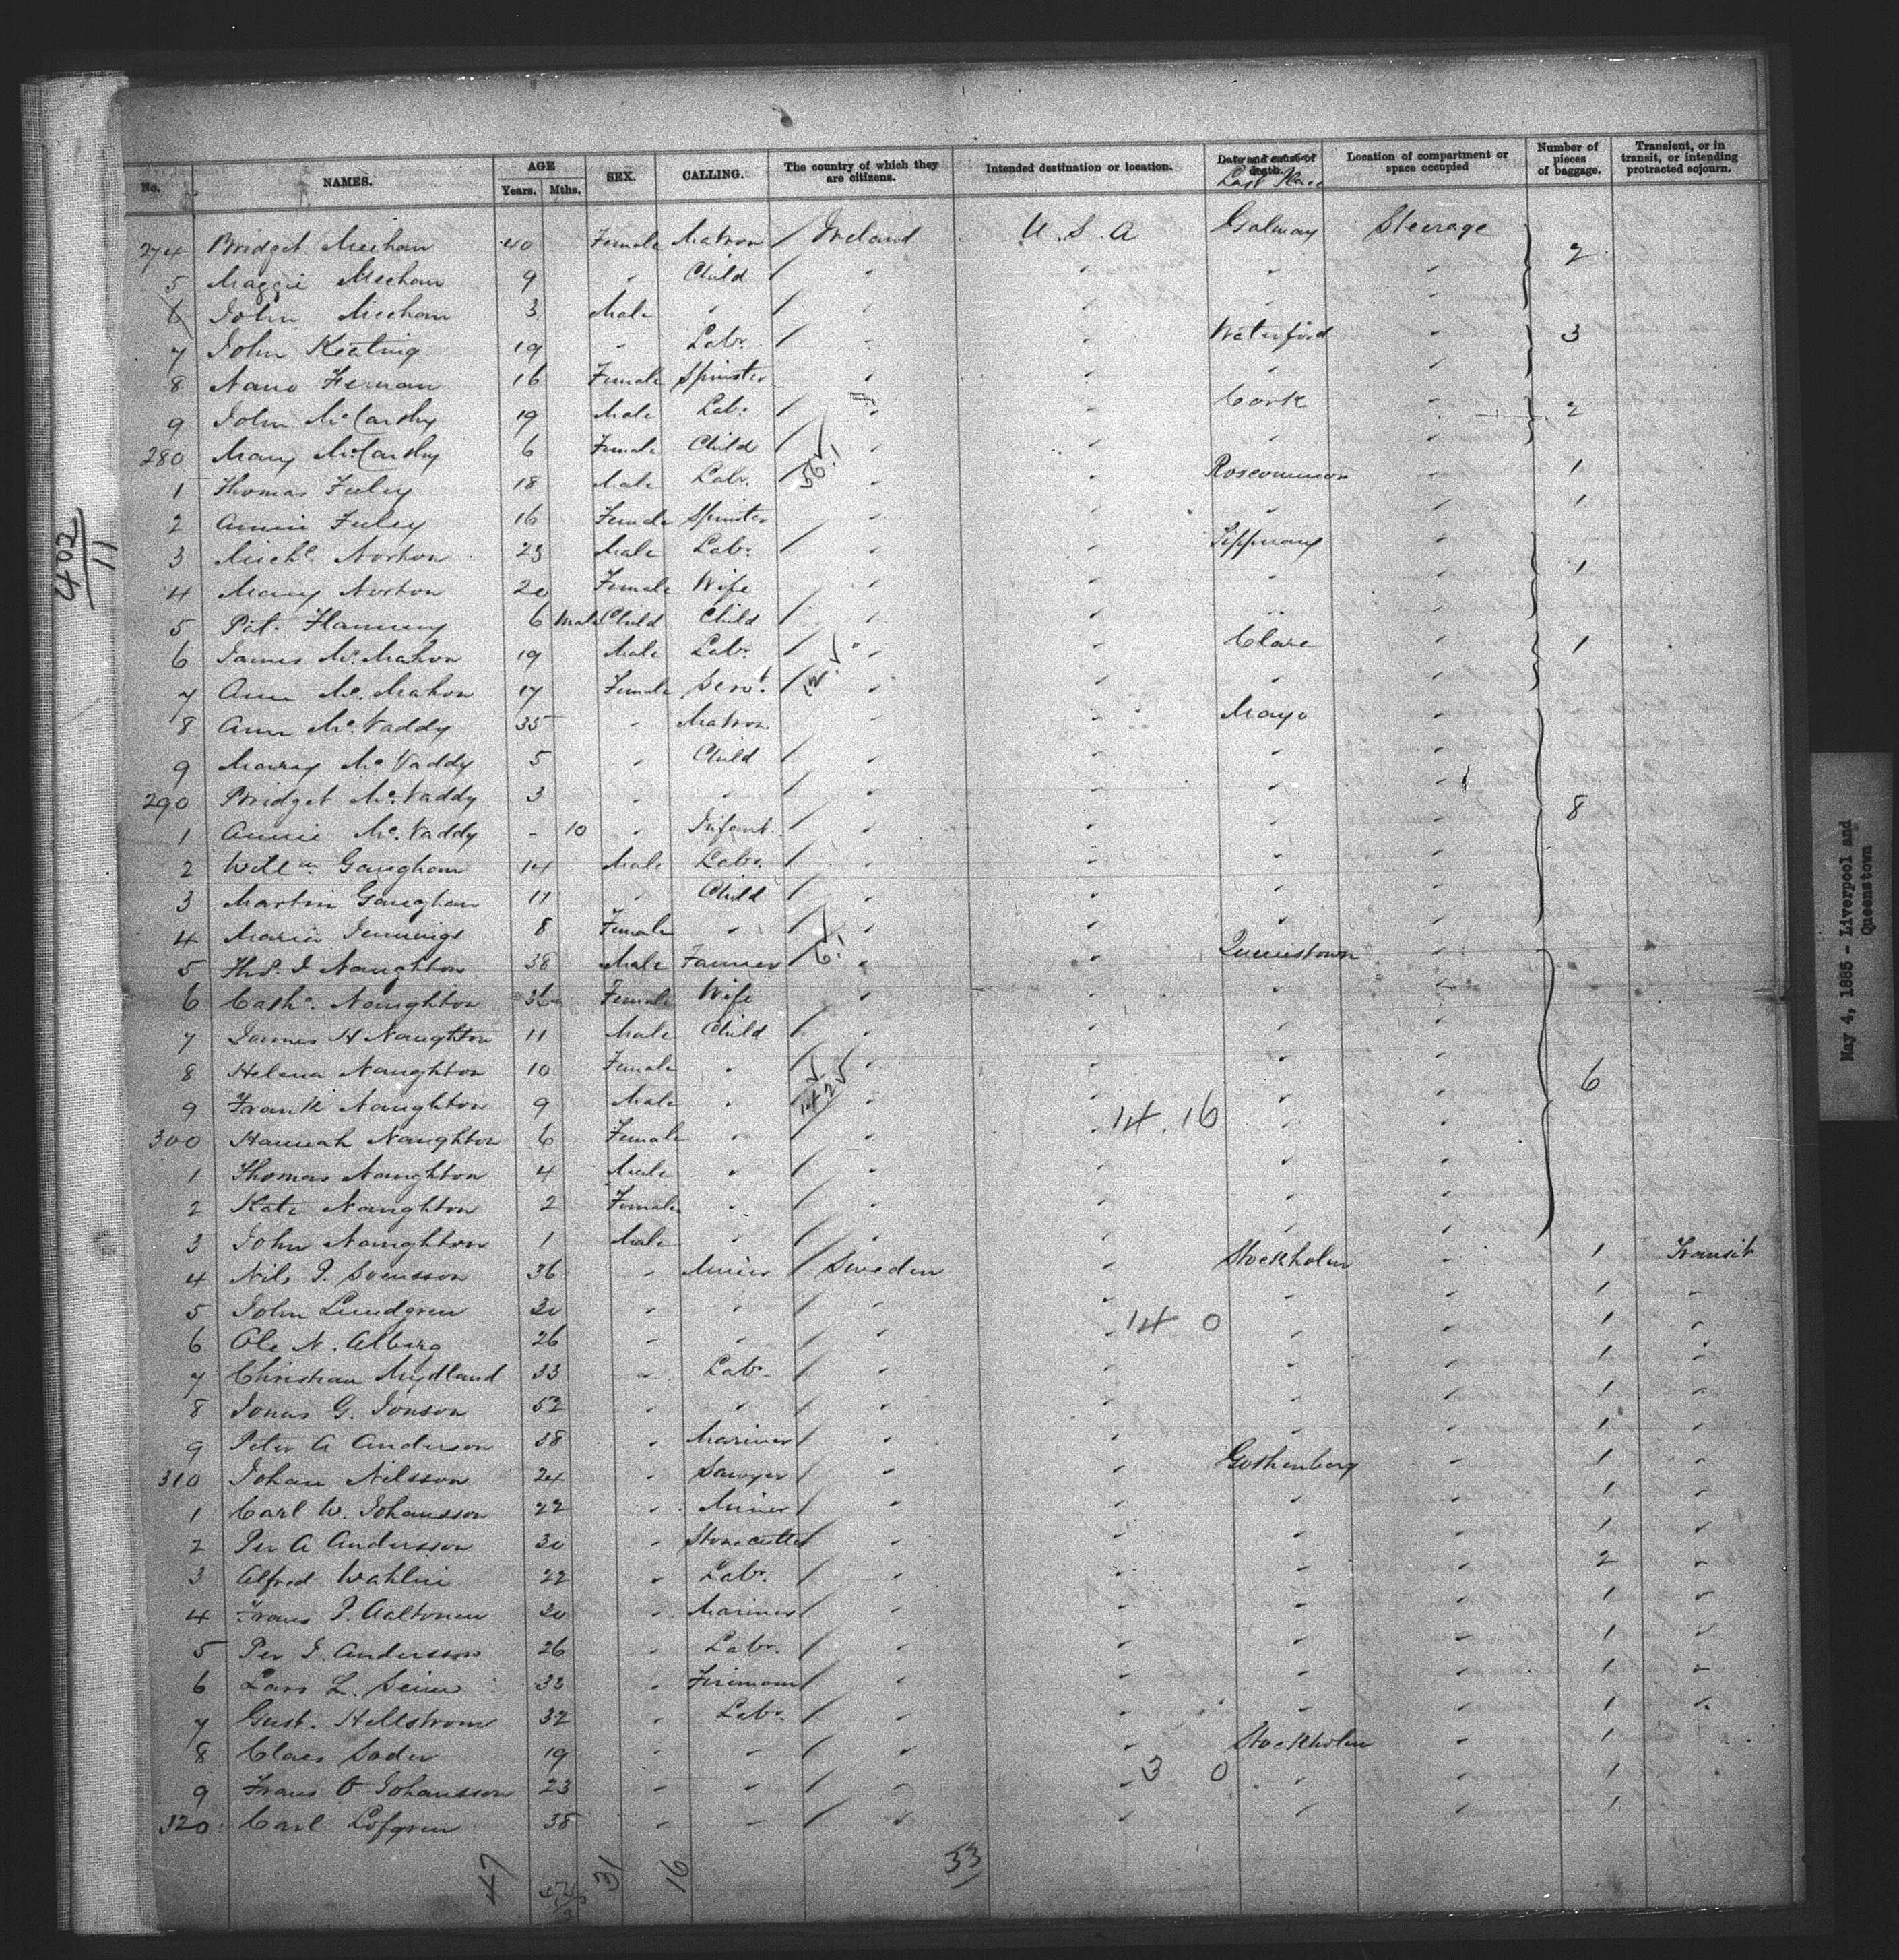 No. NAMES. AGE Years. Mths. SEX. CALLING. The country of which they are citizens. Intended destination or location. Date and cause of death. Last Place Location of compartment or space occupied Number of pieces of baggage. Transient, or in transit, or intending protracted sojourn.
274 Bridget Meehan 40 Female Matron / Ireland U.S.A Galway Steerage 2
5 Maggie Meehan 9 " Child / " " " "
6 John Meehan 3 Male " / " " " "
7 John Keating 19 " Labr. / " " Waterford " 3
8 Nano 16 Female Spinster " " " "
9 John McCarthy 19 Male Labr. / " " Cork " 2
280 Mary McCarthy 6 Female Child / " " " "
1 Thomas Feeley 18 Male Labr. / " " Roscommon " 1
2 Annie Feeley 16 Female Spinster " " " " 1
3 Michl. Norton 23 Male Labr. / " " Tipperary " 1
4 Mary Norton 20 Female Wife " " " "
5 Pat. 6 Male Child Child / " " " "
6 James McMahon 19 Male Labr. / " " Clare " 1
7 Ann McMahon 17 Female Servt. / " " " "
8 Ann McVaddy 35 " Matron " " Mayo "
9 Mary McVaddy 5 " Child / " " " "
290 Bridget McVaddy 3 " " / " " " " 8
1 Annie McVaddy - 10 " Infant / " " " "
2 Willm. Gaughan 14 Male Labr. / " " " "
3 Martin Gaughan 11 " Child / " " " "
4 Maria Jennings 8 Female " / " " " "
5 Thos. J Naughton 38 Male Farmer / " " Queenstown "
6 Cathe. Naughton 36 Female Wife " " " "
7 James H Naughton 11 Male Child / " " " "
8 Helena Naughton 10 Female " / " " " " 6
9 Frank Naughton 9 Male " / " " " "
14.16
300 Hannah Naughton 6 Female " / " " " "
1 Thomas Naughton 4 Male " / " " " "
2 Kate Naughton 2 Female " / " " " "
3 John Naughton 1 Male " / " " " "
4 Nils P. Svensson 36 " Miner / Sweden " Stockholm " 1 Transit
5 John Lundgren 30 " " / " " " " 1 "
14 0
6 Ole N. Alberg 26 " " / " " " " 1 "
7 Christian Mydland 33 " Labr. / " " " " 1 "
8 Jonas G. Jonson 52 " " / " " " " 1 "
9 Peter A Anderson 38 " Mariner / " " " " 1 "
310 Johan Nilsson 24 " Sawyer / " " Gothenberg " 1 "
1 Carl W. Johansson 22 " Miner / " " " " 1 "
2 Per A Andersson 30 " Stonecutter / " " " " 1 "
3 Alfred Wahlin 22 " Labr. / " " " " 2 "
4 Frans P. Aaltonen 30 " Mariner / " " " " 1 "
5 Per J. Andersson 26 " Labr. / " " " " 1 "
6 Lars L. 33 " Fireman / " " " " 1 "
7 Gust. Hellstrom 32 " Labr. / " " " " 1 "
8 Claes Soder 19 " " / " " Stockholm " 1
9 Frans O Johansson 23 " " / " " " " 1
3 0
320 Carl Lofgren 38 " " / " " " " 1
47 31 16 33
402
11
May 4, 1885 - Liverpool and
Queenstown